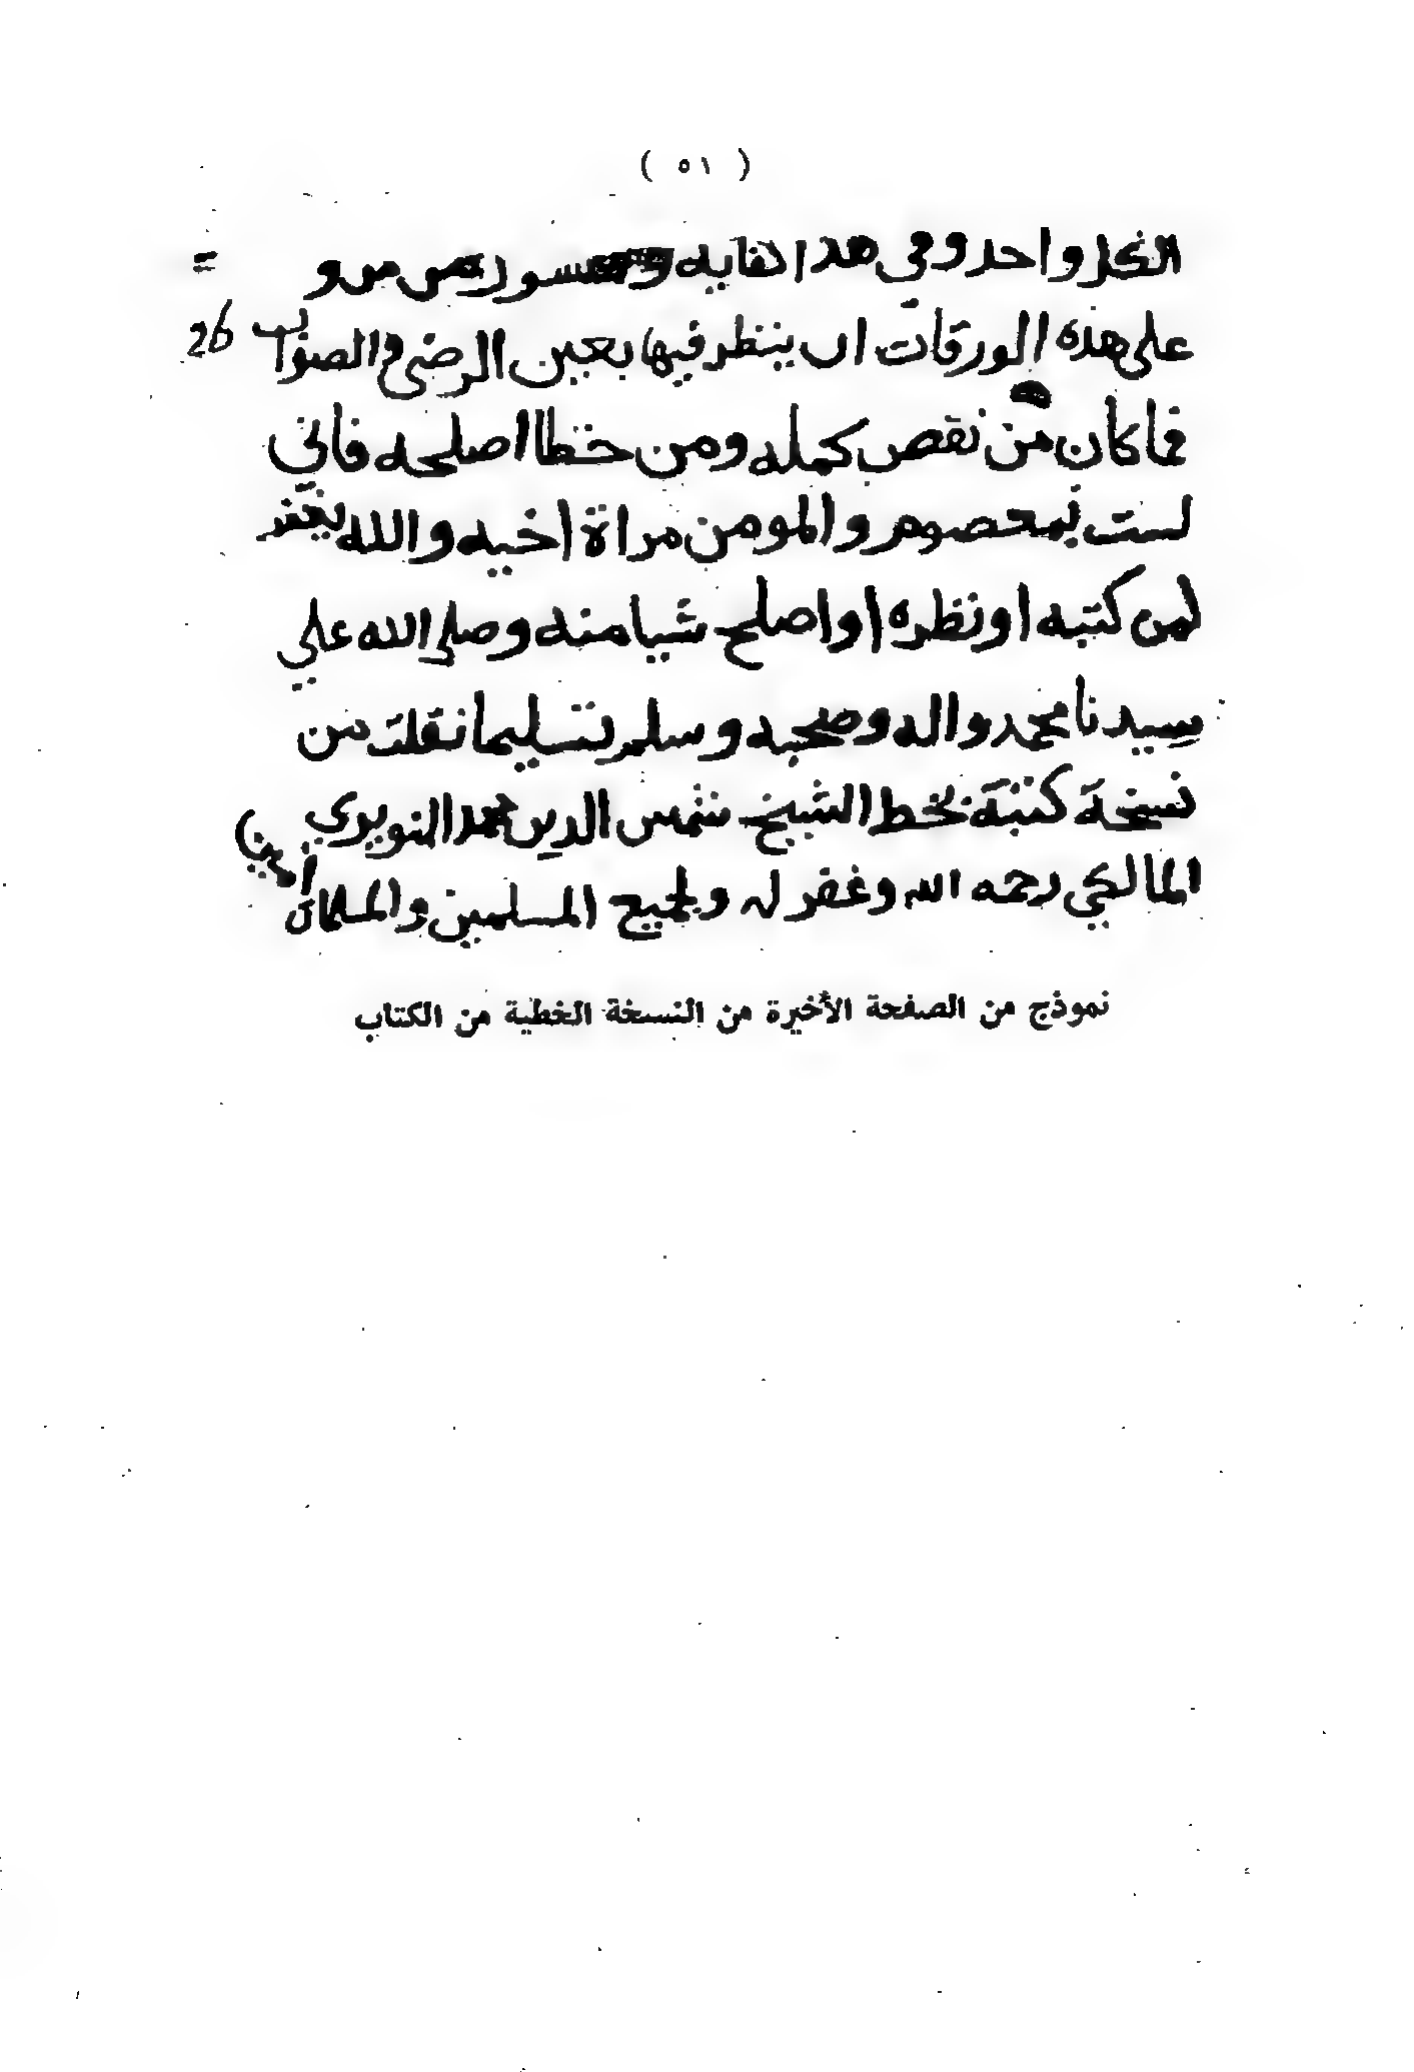 ( ٥١ )
الكل واحد وفي هدا كفايه
على هذه الورقات ان ينظر فيها بعين الرضى والصواب
26
فما كان من نقص كمله ومن خطا اصلحه فاني
لست بمعصوم والمومن مراة اخيه والله يغفر
لمن كتبه او نظره او اصلح شيا منه وصلى الله علي
سيدنا محمد واله وصحبه وسلم تسليما نقلت من
نسخة كتبة بخط الشيخ شمس الدين محمد النويري
المالكي رحمه الله وغفر له ولجميع المسلمين والمسلمات امين
نموذج من الصفحة الأخيرة من النسخة الخطية من الكتاب